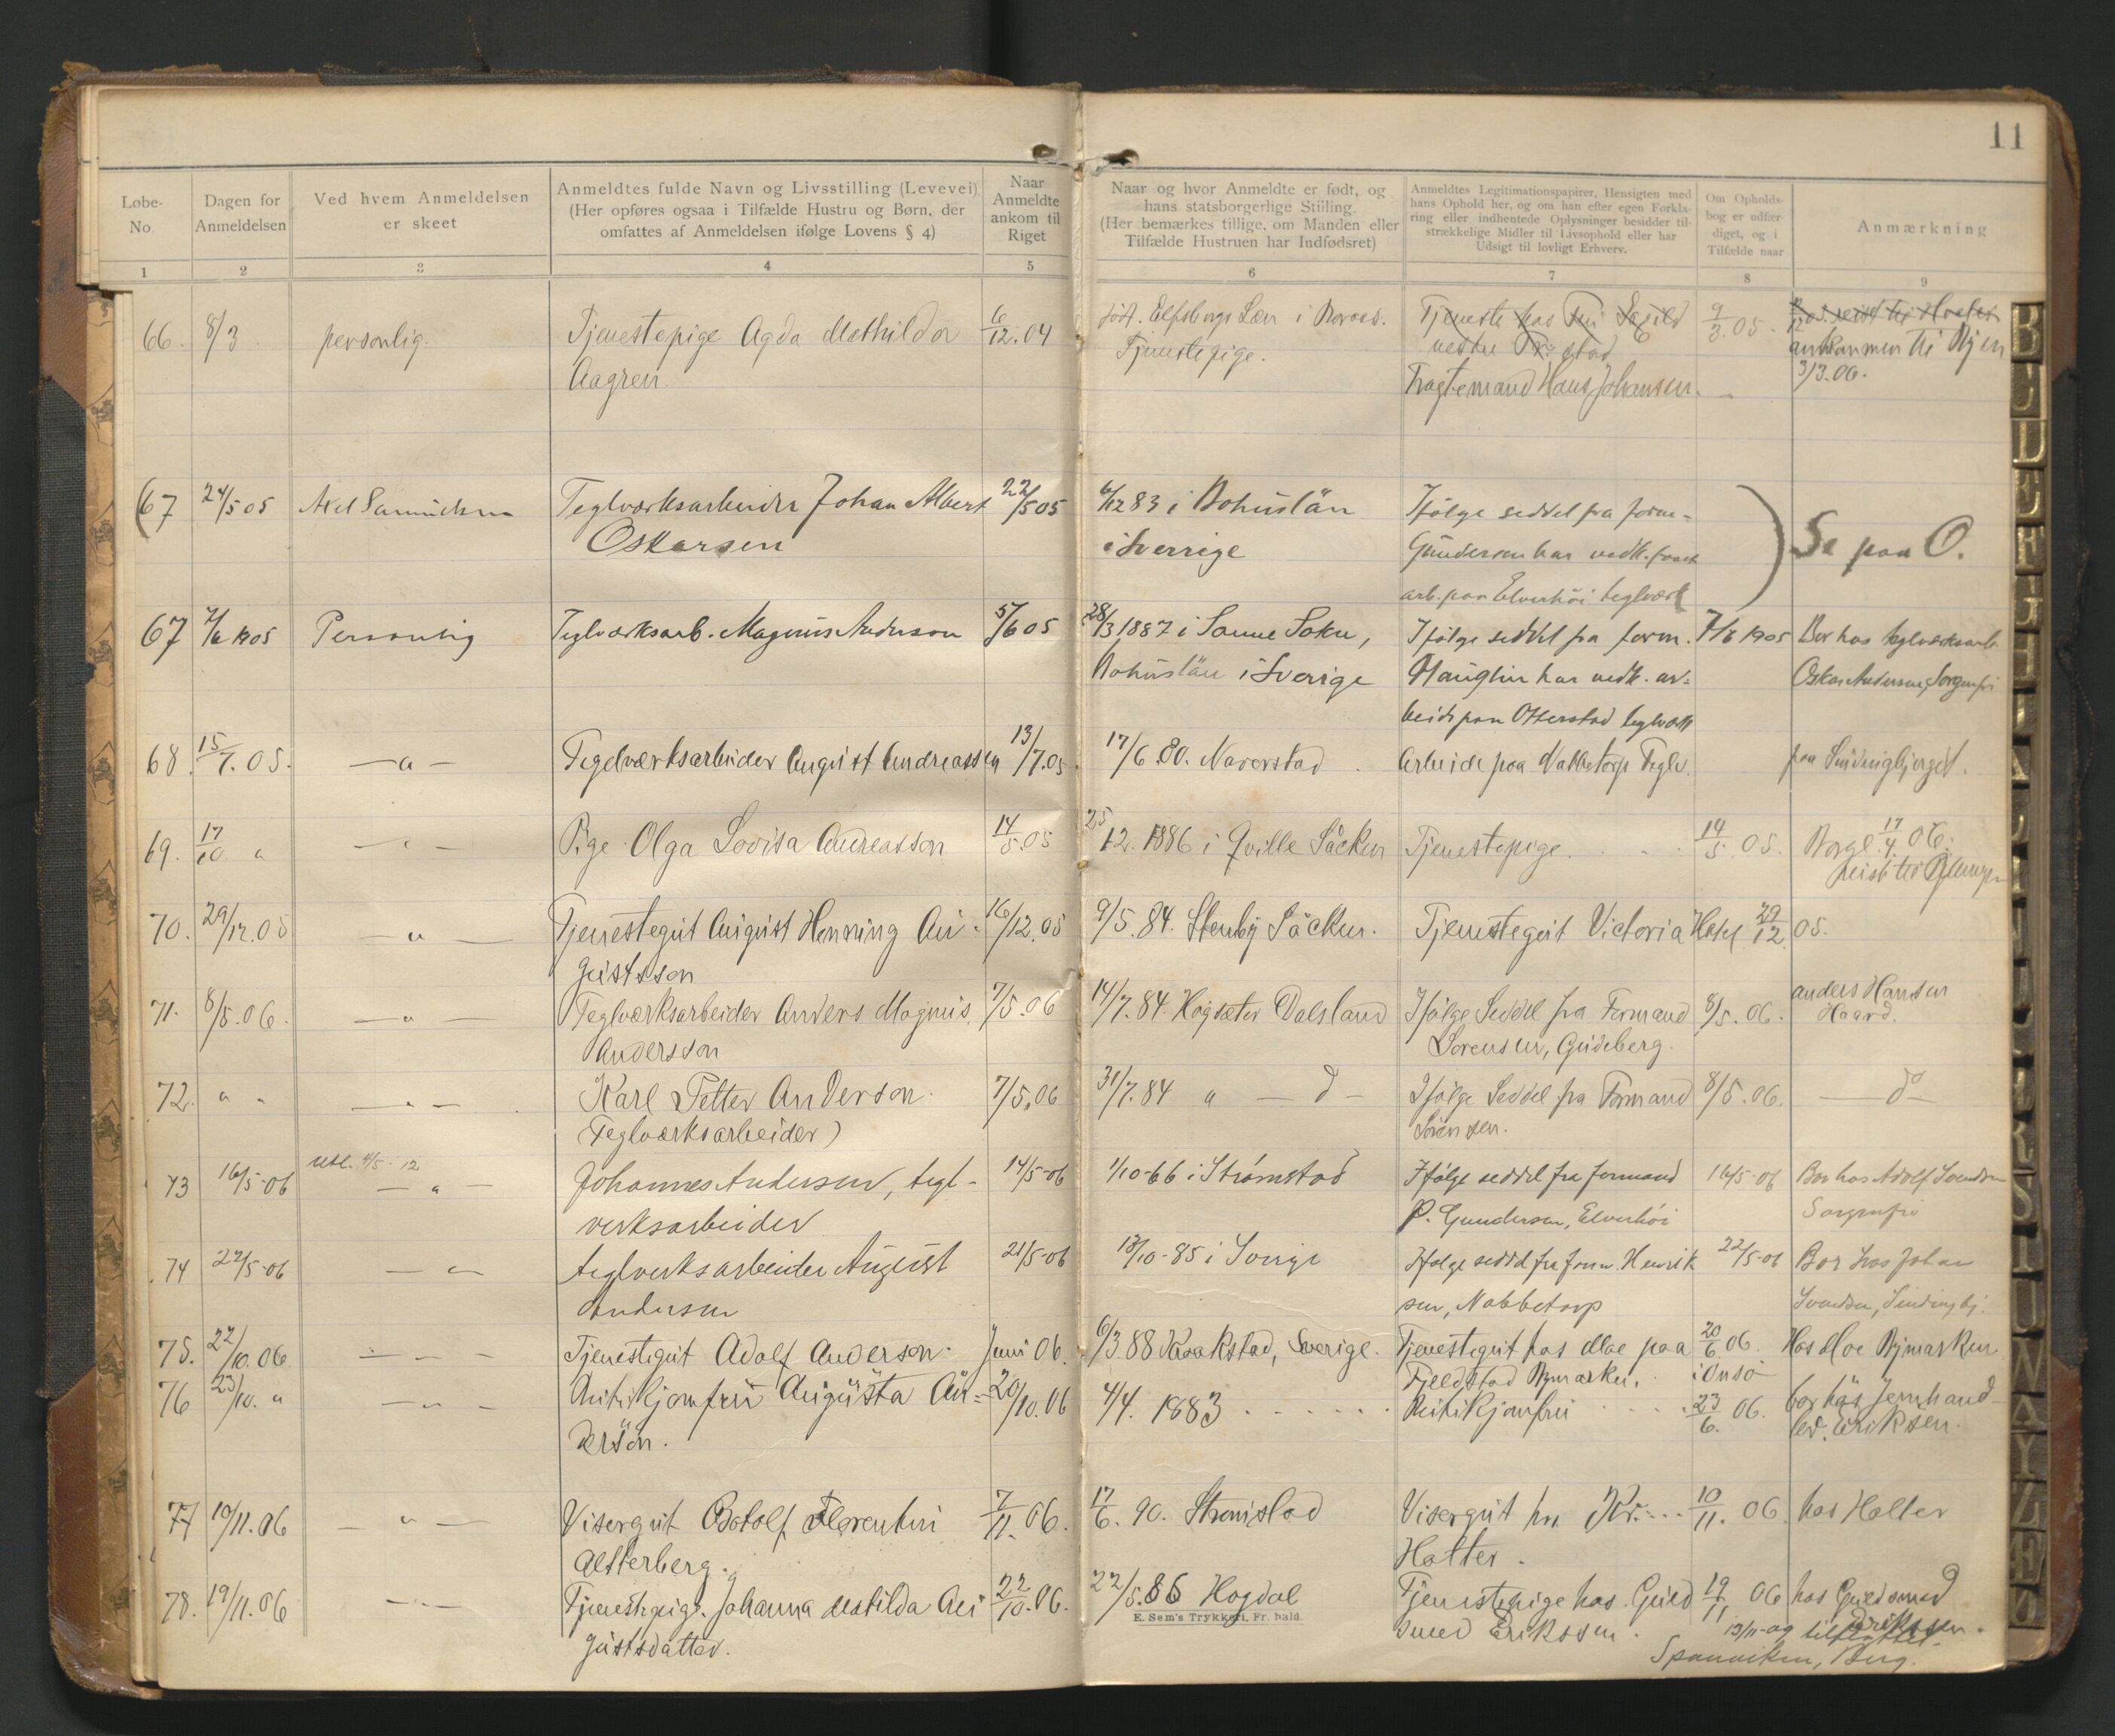 11
Løbe-No.
Dagen for Anmeldelsen
Ved hvem Anmeldelsen er skeet
Anmeldtes fulde Navn og Livsstilling (Levevei)
(Her opføres ogsaa i Tilfælde Hustru og Børn, der
omfattes af Anmeldelsen ifølge Lovens § 4)
Naar Anmeldte ankom til Riget
Naar og hvor Anmeldte er født, og
hans statsborgerlige Stilling.
(Her bemærkes tillige, om Manden eller
Tilfælde Hustruen har Indfødsret)
Anmeldtes Legitimationspapirer, Hensigten med
hans Ophold her, og om han efter egen Forkla-
ring eller indhentede Oplysninger besidder til-
strækkelige Midler til Livsophold eller har
Udsigt til lovligt Erhverv.
Om Opholds-
bog er udfær-
diget, og i
Tilfælde naar
Anmærkning
1 2 3 4 5 6 7 8 9
66. 8/3 personlig. Tjenestepige Agda Mathilda 6/12.04 født. Elfsborgs Læn i Boraas. Tjeneste hos 9/3.05.
Aagren. Tjenestepige. ankommen til Byen
Fragtemand Hans Johansen. 3/3.06.
67 24/5 05 Axel Samuelsen Teglværksarbeider Johan Albert 22/5 05 6/12 83 i Bohuslän Ifølge seddel fra form= Se paa O.
Oskarsen i Sverrige Gundersen har vedk. faaet
arb. paa Elverhöi teglværk
67 7/6 1905 Personlig Teglværksarb. Magnus Anderson 5/6 05 28/3 1887 i Sanne Sokn, Ifølge seddel fra form. 7/6 1905 Bor hos teglværksarb.
Bohuslän i Sverige Hauglin har vedk. ar= Oskar Anderson, Sorgenfri
beide paa Otterstad teglværk
68. 15/7.05. —a— Tegelværksarbeider August Andreassen 13/7.05 17/6 80. Naverstad. Arbeide paa Nabbetorp Teglv. paa
69. 17/10 a Pige Olga Lovisa Andreasson 14/5.05 25/12. 1886 i Qville Såcken Tjenestepige. 14/5 05. 17/4 06.
reist til
70. 29/12.05 —a— Tjenestegut August Henning Au- 16/12.05 9/5.84. Stenby Såcken. Tjenestegut Victoria Hotel 29/12 05.
gustsson
71. 8/5.06. —a— Teglværksarbeider Anders Magnus 7/5.06 14/7.84. Högsäter Dalsland Ifølge Seddel fra Formand 8/5.06. Anders Hansen
Andersson Sorensen, Gudeberg. Haard.
72. a a —a— Karl Petter Anderson. 7/5.06 31/7.84 a —d— Ifølge Seddel fra Formand 8/5.06. —do—
(Teglværksarbeider) Sorensen.
utl. 4/5-12
73 16/5-06 —a— Johannes Andersen, tegl- 14/5-06 1/10-66 i Strömstad Ifølge seddel fra formand 16/5-06 Bor hos Adolf Svendsen
verksarbeider P. Gundersen, Elverhöi Sorgenfri
74 22/5-06 —a— teglverksarbeider August 21/5-06 13/10-85 i Sverige Ifølge seddel fra form. Henrik 22/5-06 Bor hos Johan
Andersen sen, Nabbetorp Svendsen,
75. 22/10.06 — — — Tjenestegut Adolf Anderson. Juni 06. 6/3.88 Krokstad, Sverige. Tjenestegut hos Moe paa 20/6 06. Hos Moe Bymarken
Fjeldstad Bymarken. i Onsö
76 23/10. a —a— Butikjomfru Augusta An= 20/10.06 4/4. 1883 Butikjomfru 23/6. 06. bor hos Jernhand-
derson. ler. Eriksen.
77 10/11.06 —a— Visergut Botolf Florentin 7/11.06. 17/6. 90. Strömstad Visergut hos Kr. 10/11. 06. hos Holter
Alsterberg. Holter.
78. 19/11.06 Tjenestepige. Johanna Matilda Au 22/10.06. 22/5.86 Hogdal Tjenestepige hos. Guld 19/11 06 hos Guldsmed
gustsdatter. smed Erikssen. Erikssen.
13/11-09 tilflyttet
Berg.
E. Sem's Trykkeri, Fr. hald.